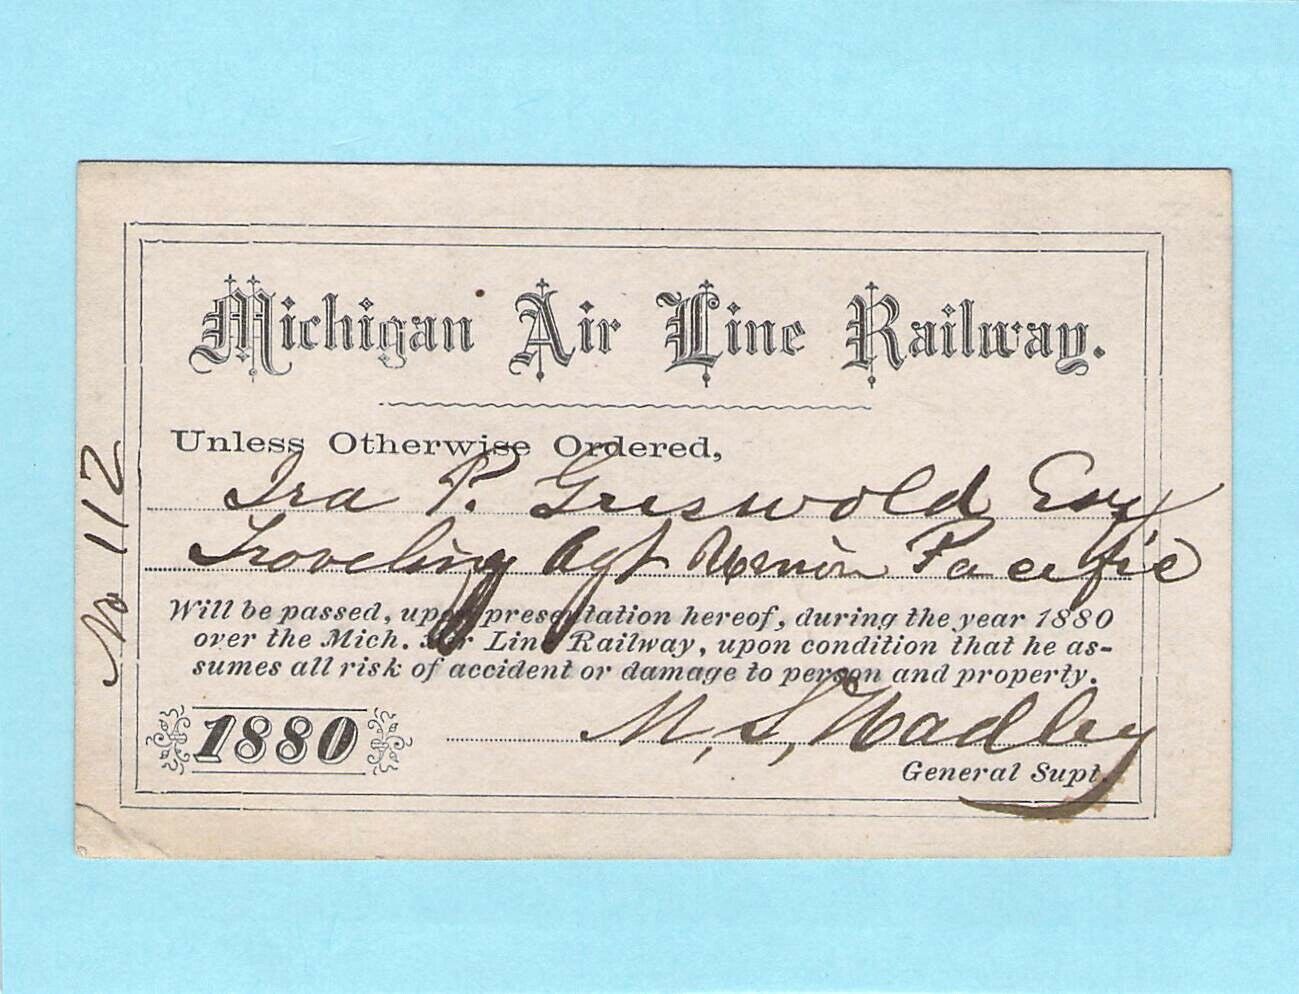 Michigan Air Line Railway.
Unless Otherwise Ordered,
Ira P. Griswold Esq
Traveling Agt Union Pacific
Will be passed, upon presentation hereof, during the year 1880
over the Mich. Air Line Railway, upon condition that he as-
sumes all risk of accident or damage to person and property.
1880
M. S. Hadley
General Supt.
No 112